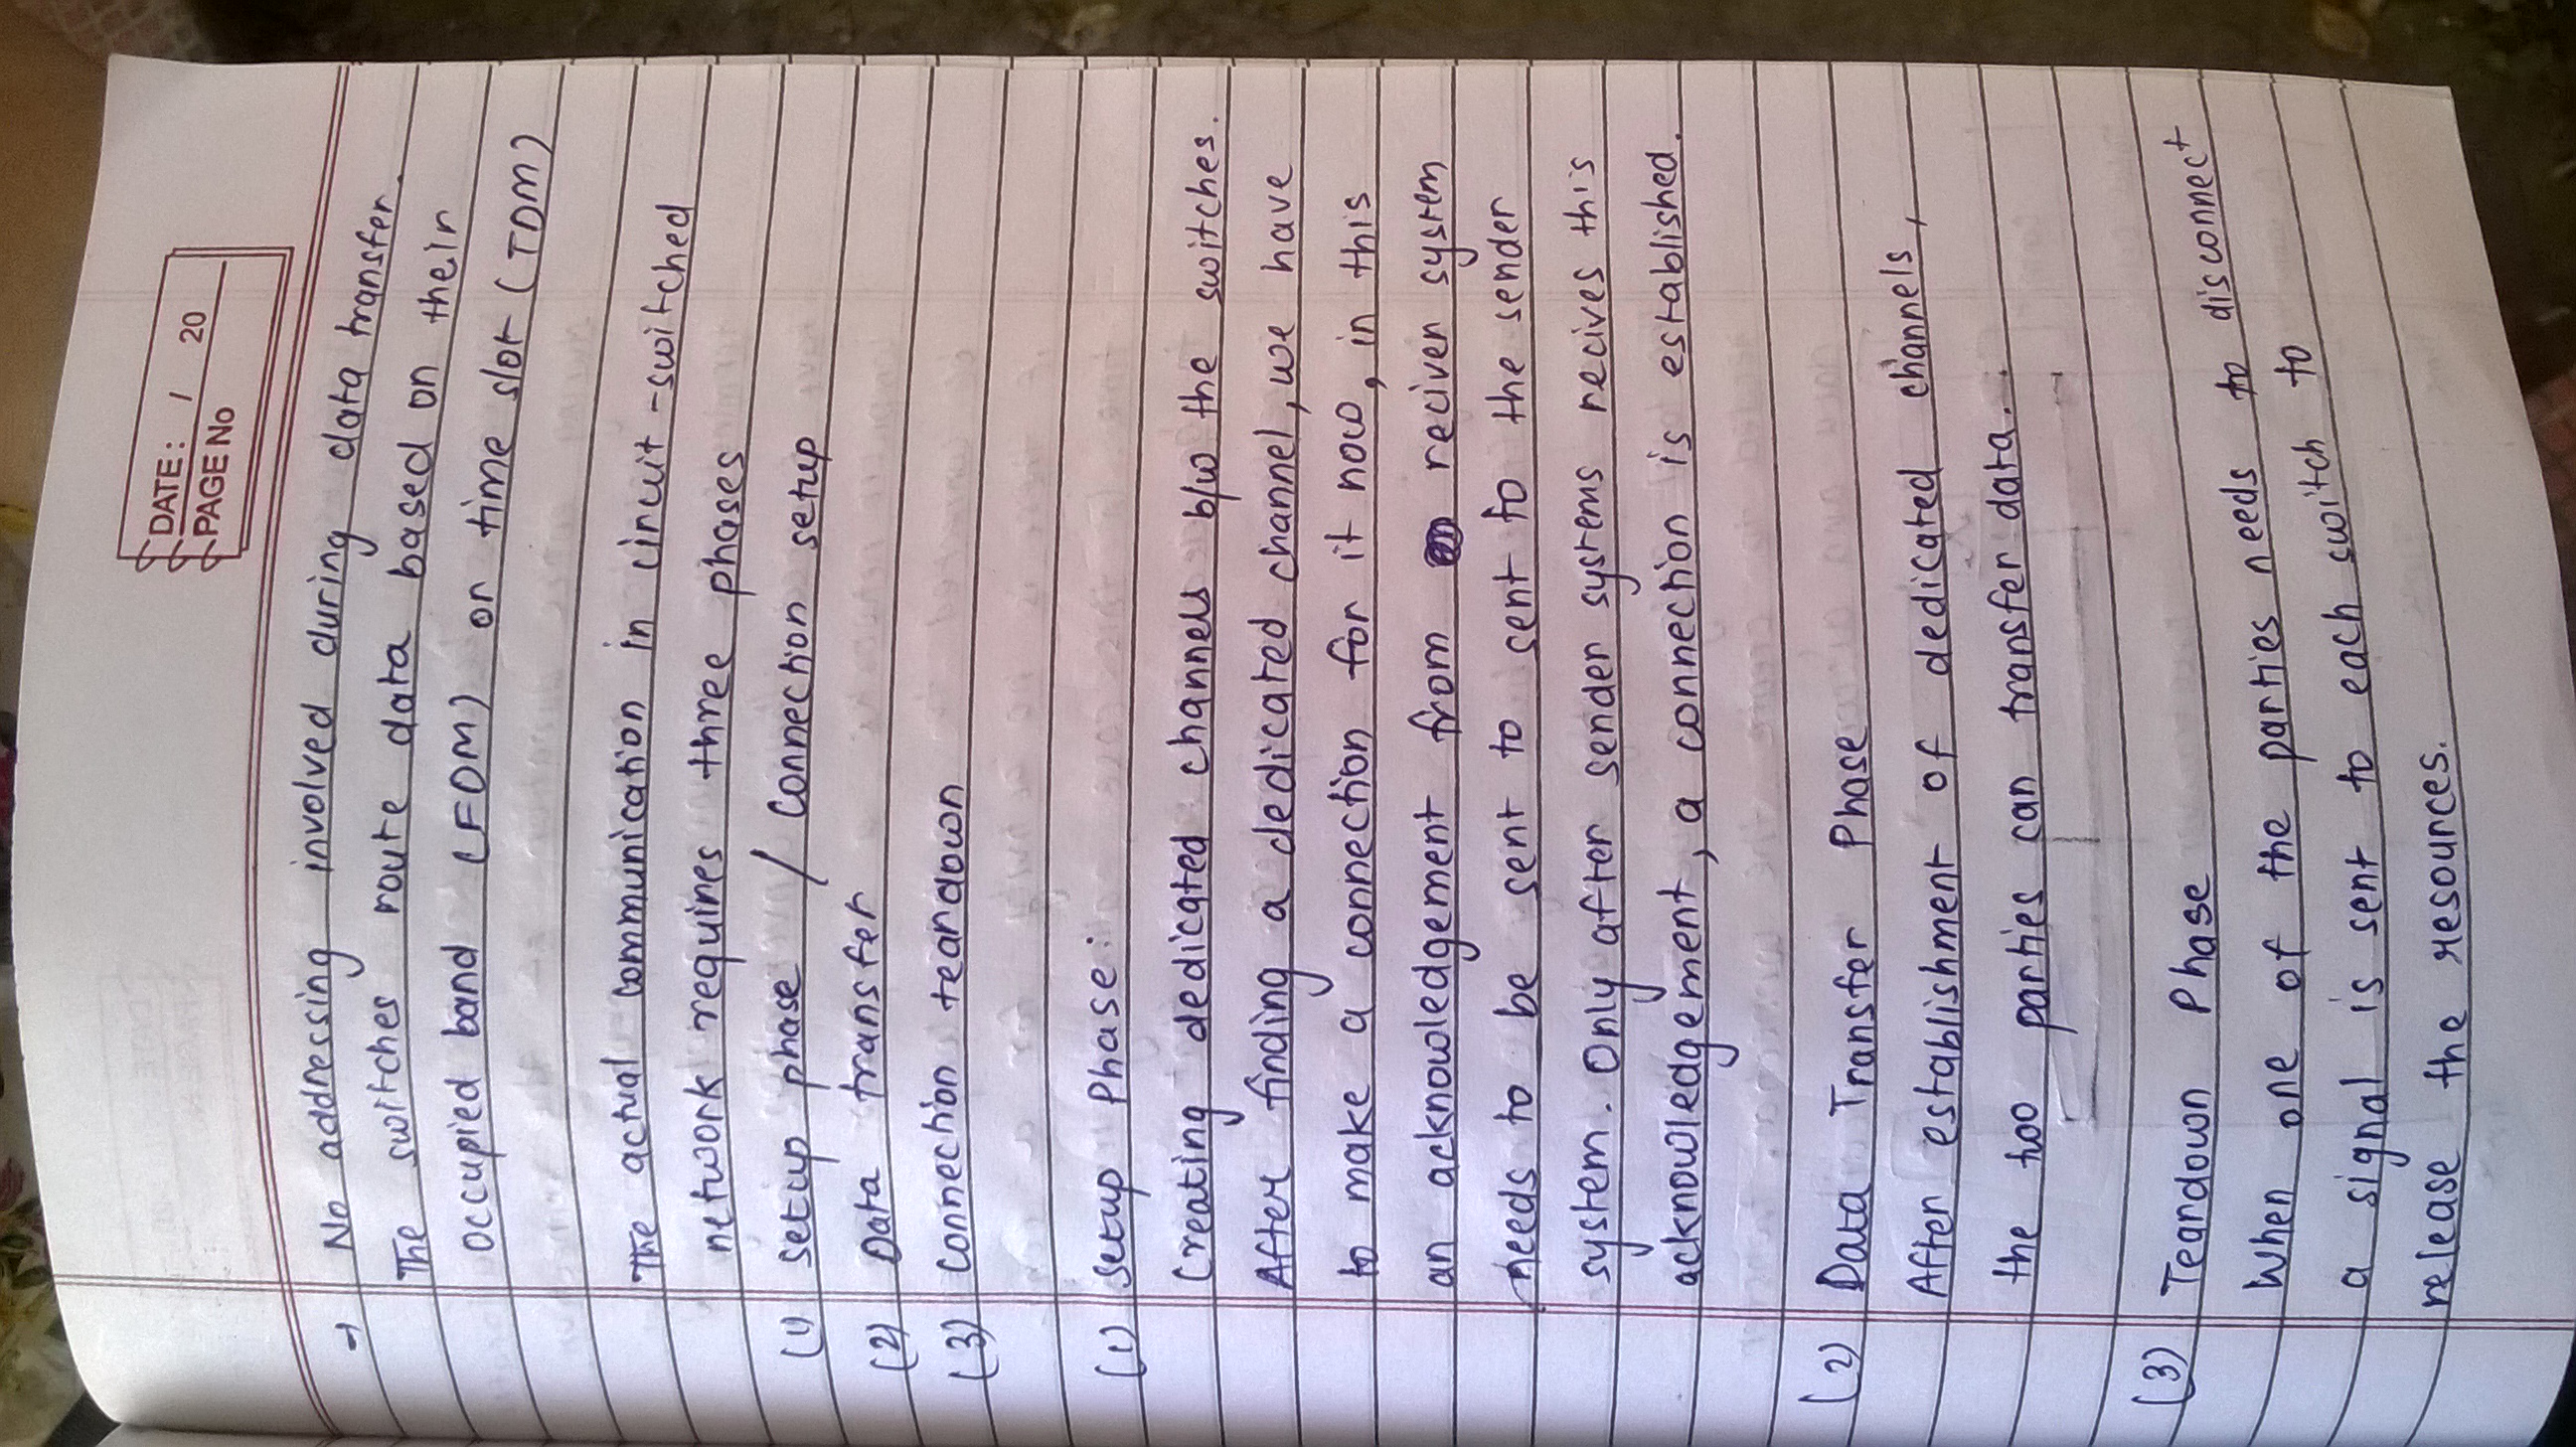 DATE: / 20
PAGE No
→ No addressing involved during data transfer.
The switches route data based on their
occupied band (FDM) or time slot (TDM)
The actual communication in circuit-switched
network requires three phases
(1) setup phase / connection setup
(2) Data transfer
(3) connection teardown
(1) setup Phase:
Creating dedicated channels b/w the switches.
After finding a dedicated channel, we have
to make a connection for it now, in this
an acknowledgement from reciver system
needs to be sent to sent to the sender
system. Only after sender systems recives this
acknowledgement, a connection is established.
(2) Data Transfer Phase
After establishment of dedicated channels,
the two parties can transfer data.
(3) Teardown Phase
When one of the parties needs to disconnect
a signal is sent to each switch to
release the resources.